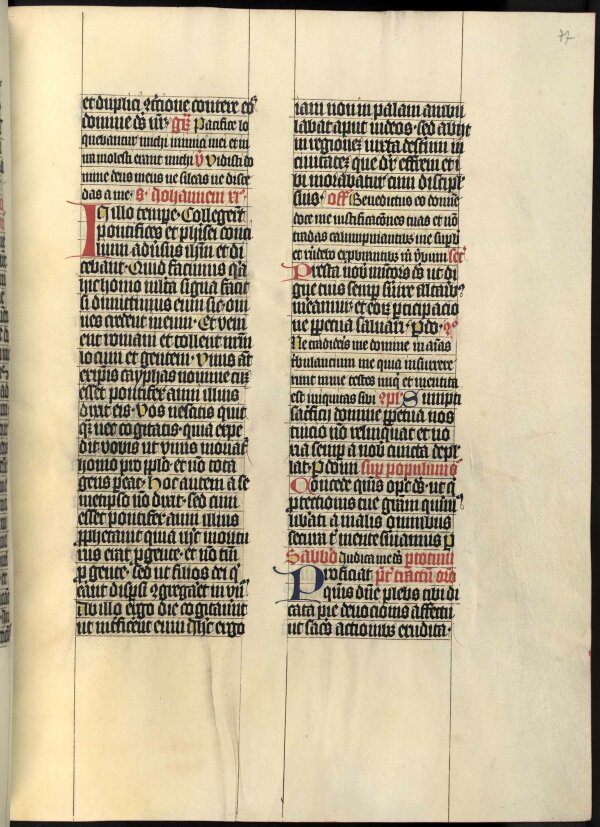 77
et duplici ꝯtricione contere eos
domine ds nr̄ · gr̄ Pacifice lo
quebantur michi inimici mei et in
ira molesti erant michi ℣ Vidisti do
mine deus meus ne sileas ne disce
das a me · S · Johannem xi ·
In illo tempe · Collegerūt
pontifices et pharisei conci
lium adūsus ihm et di
cebant · Quid facimus qa
hic homo multa signa facit
si dimittimus eum sic · om
nes credent in eum · Et veni
ent romani et tollent nrm
locum et gentem · Vnus aūt
ex ipīs cayphas nomine cū
esset pontifex anni illius
dixit eis · Vos nescitis quitꝗ
nec cogitatis · quia expe
dit vobis ut vnus moriat
homo pro pplo · et nō tota
gens peat · Hoc autem a se
metipso nō dixit · sed cum
esset pontifex anni illius
pphetauit quia ihc moritu
rus erat p gente · et nō tm̄
p gente · sed ut filios dei q
erant dispsi ꝯgregaret in vnū
Ab illo ergo die cogitauerūt
ut interficerent eum Ihc ergo
iam non in palam ambu
labat aput iudeos · sed abijt
in regionem iuxta desertum in
ciuitatem que dr effrem et i
bi morabatur cum discipls
suis · off Benedictus es domine
doce me iustificacōnes tuas et nō
tradas calumpniantibus me supbis
et rn̄debo exprobrantibus m ūbum Sec̄
Presta nobis miscors ds ut di
gne tuis semp seruire altarib
mereamur · et eorum pticipacio
ne ppetua saluari · P do · 9o
Ne tradideris me domine in aīas
tribulancium me quia insurrexe
runt in me testes iniqi et mentita
est iniquitas sibi ꝯpl Sumpti
sacrificij domine ppetua nos
tuicio nō relinquat et no
xia semp a nobis cuncta depel
lat · P dominū sup populum 9
Concede qs oīps ds ut q
ptectionis tue grām querim
libati a malis omnibus
secura t mente seruiamus P
Sabbo Judica me ds ptotum
Proficiat pr̄ tractū oro
qs dne plebs tibi di
cata pie deuocionis affectu
ut sacris actionibus erudita ·